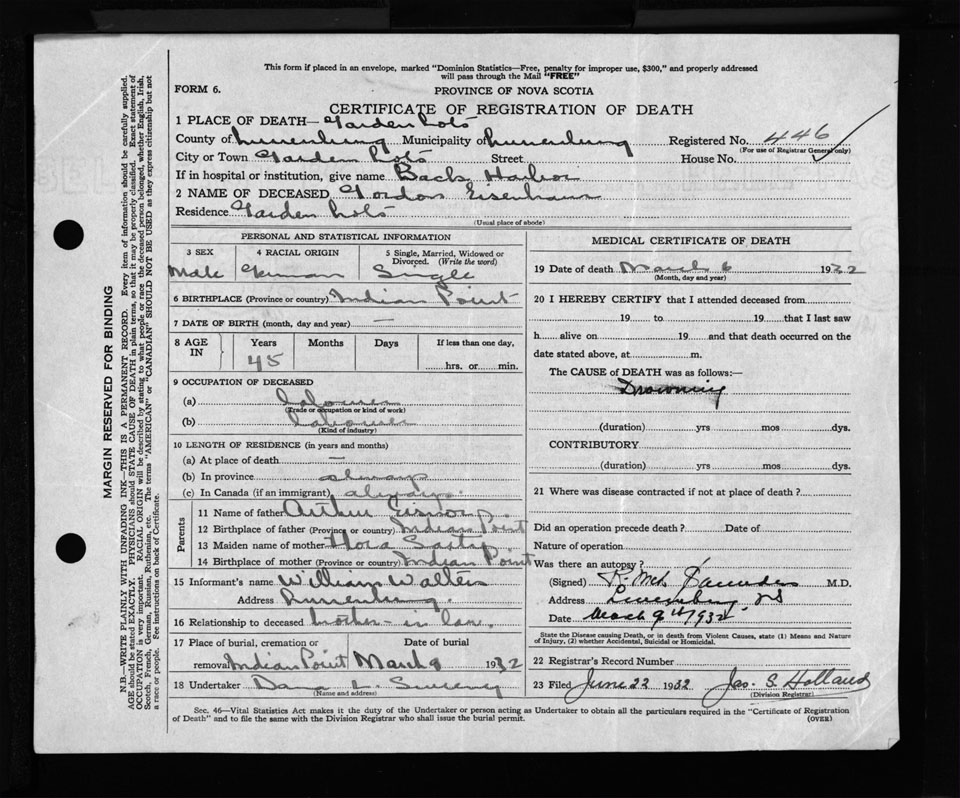 This form if placed in an envelope, marked "Dominion Statistics—Free, penalty for improper use, $300," and properly addressed
will pass through the Mail "FREE"
FORM 6.
PROVINCE OF NOVA SCOTIA
CERTIFICATE OF REGISTRATION OF DEATH
1 PLACE OF DEATH— Garden Lots
County of Lunenburg Municipality of Lunenburg Registered No. 446
(For use of Registrar General only)
City or Town Garden Lots Street House No.
If in hospital or institution, give name Back Harbor
2 NAME OF DECEASED Gordon Eisenhaur
Residence Garden Lots
(Usual place of abode)
PERSONAL AND STATISTICAL INFORMATION
3 SEX 4 RACIAL ORIGIN 5 Single, Married, Widowed or
Divorced. (Write the word)
Male German Single
6 BIRTHPLACE (Province or country) Indian Point
7 DATE OF BIRTH (month, day and year) —
8 AGE IN Years Months Days If less than one day,
45 hrs. or min.
9 OCCUPATION OF DECEASED
(a) Labourer
(Trade or occupation or kind of work)
(b) Labourer
(Kind of industry)
10 LENGTH OF RESIDENCE (in years and months)
(a) At place of death —
(b) In province always
(c) In Canada (if an immigrant) always.
Parents
11 Name of father Arthur
12 Birthplace of father (Province or country) Indian Point
13 Maiden name of mother
14 Birthplace of mother (Province or country) Indian Point
15 Informant's name William Walters
Address Lunenburg.
16 Relationship to deceased brother-in-law.
17 Place of burial, cremation or Date of burial
removal Indian Point March 9 1932
18 Undertaker Dana L. Sweeny
(Name and address)
MEDICAL CERTIFICATE OF DEATH
19 Date of death March 6 1932
(Month, day and year)
20 I HEREBY CERTIFY that I attended deceased from
19 to 19 that I last saw
h alive on 19 and that death occurred on the
date stated above, at m.
The CAUSE of DEATH was as follows:—
Drowning
(duration) yrs mos dys.
CONTRIBUTORY
(duration) yrs mos dys.
21 Where was disease contracted if not at place of death?
Did an operation precede death? Date of
Nature of operation
Was there an autopsy?
(Signed) Saunders M.D.
Address Lunenburg NS
Date March 9th/932
State the Disease causing Death, or in death from Violent Causes, state (1) Means and Nature
of Injury, (2) whether Accidental, Suicidal or Homicidal.
22 Registrar's Record Number
23 Filed June 22 1932 Jas. S. Holland
(Division Registrar)
Sec. 46—Vital Statistics Act makes it the duty of the Undertaker or person acting as Undertaker to obtain all the particulars required in the "Certificate of Registration
of Death" and to file the same with the Division Registrar who shall issue the burial permit.
(OVER)
MARGIN RESERVED FOR BINDING
N.B.—WRITE PLAINLY WITH UNFADING INK—THIS IS A PERMANENT RECORD. Every item of information should be carefully supplied.
AGE should be stated EXACTLY. PHYSICIANS should STATE CAUSE OF DEATH in plain terms, so that it may be properly classified. Exact statement of
OCCUPATION is very important. RACIAL ORIGIN will be described by stating to what people or race the deceased person belonged, whether English, Irish,
Scotch, French, German, Russian, Ruthenian, etc. The terms "AMERICAN" or "CANADIAN" SHOULD NOT BE USED as they express citizenship but not
a race or people. See instructions on back of Certificate.